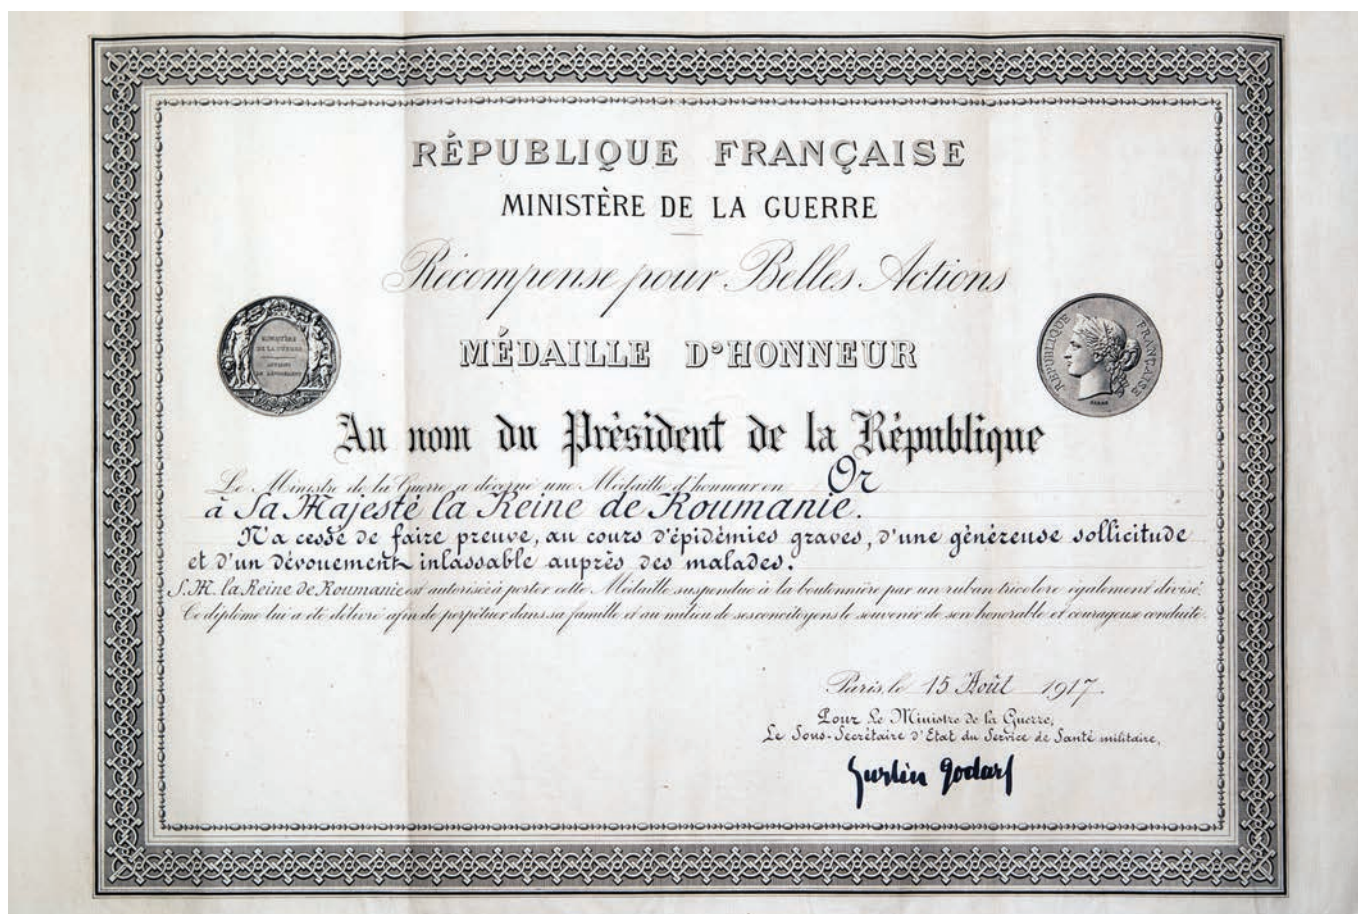 RÉPUBLIQUE FRANÇAISE
MINISTÈRE DE LA GUERRE
Récompense pour Belles Actions
MINISTÈRE
DE LA GUERRE
ACTIONS
DE DÉVOUEMENT
MÉDAILLE D'HONNEUR
RÉPUBLIQUE FRANÇAISE
Au nom du Président de la République
Le Ministre de la Guerre a décerné une Médaille d'honneur en Or
à Sa Majesté la Reine de Roumanie.
N'a cessé de faire preuve, au cours d'épidémies graves, d'une généreuse sollicitude
et d'un dévouement inlassable auprès des malades.
S. M. la Reine de Roumanie est autorisée à porter cette Médaille suspendue à la boutonnière par un ruban tricolore également divisé.
Ce diplôme lui a été délivré afin de perpétuer dans sa famille et au milieu de ses concitoyens le souvenir de son honorable et courageuse conduite.
Paris, le 15 Août 1917.
Pour Le Ministre de la Guerre,
Le Sous-Secrétaire d'Etat du Service de Santé militaire,
Justin Godart